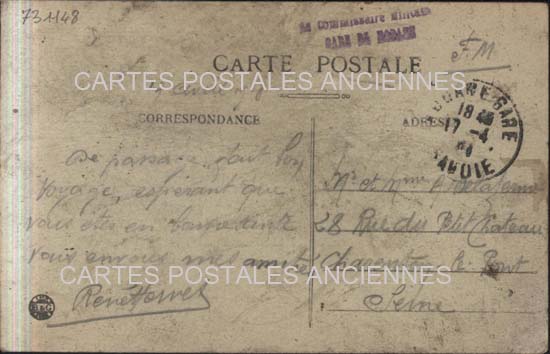 731148
Le Commissaire Militaire
GARE DE MODANE
F.M
CARTE POSTALE
CARTES POSTALES ANCIENNES
CORRESPONDANCE
ADRESSE
MODANE GARE
18
17-4
SAVOIE
De passage, fait bon
Voyage, esperant que
vous êtes en bonne santé
Vous envoie mes amitiés
Mr et Mme
28 Rue du Petit Château
Charenton le Pont
Seine
CARTES POSTALES ANCIENNES